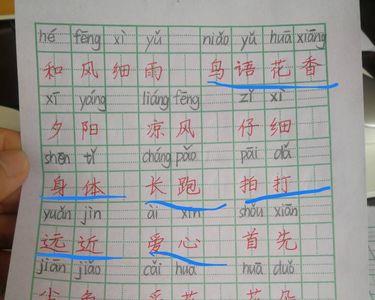 hé fēng xì yǔ niǎo yǔ huā xiāng
和风细雨 鸟语花香
xī yáng liáng fēng zǐ xì
夕阳 凉风 仔细
shēn tǐ cháng pǎo pāi dǎ
身体 长跑 拍打
yuǎn jìn ài xīn shǒu xiān
远近 爱心 首先
jiān jiǎo cǎi huā huā duǒ